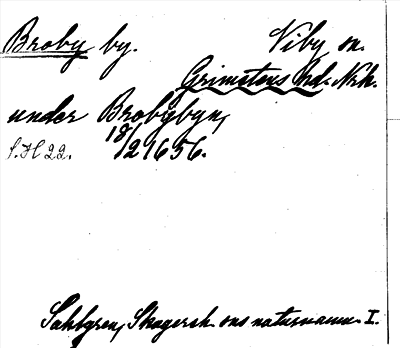 Broby by. Viby sn.
Grimstens hd. Nrk.
under Brobybyn,
f. H 22. 18/2 1656.
Sahlgren, Skagersh. sns naturnamn I.